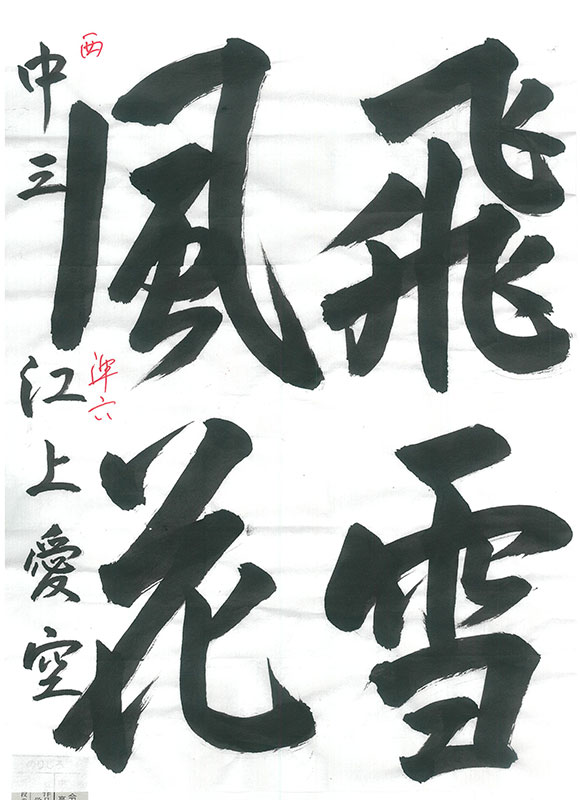 飛雪
風花
中三 江上愛空
西
準六